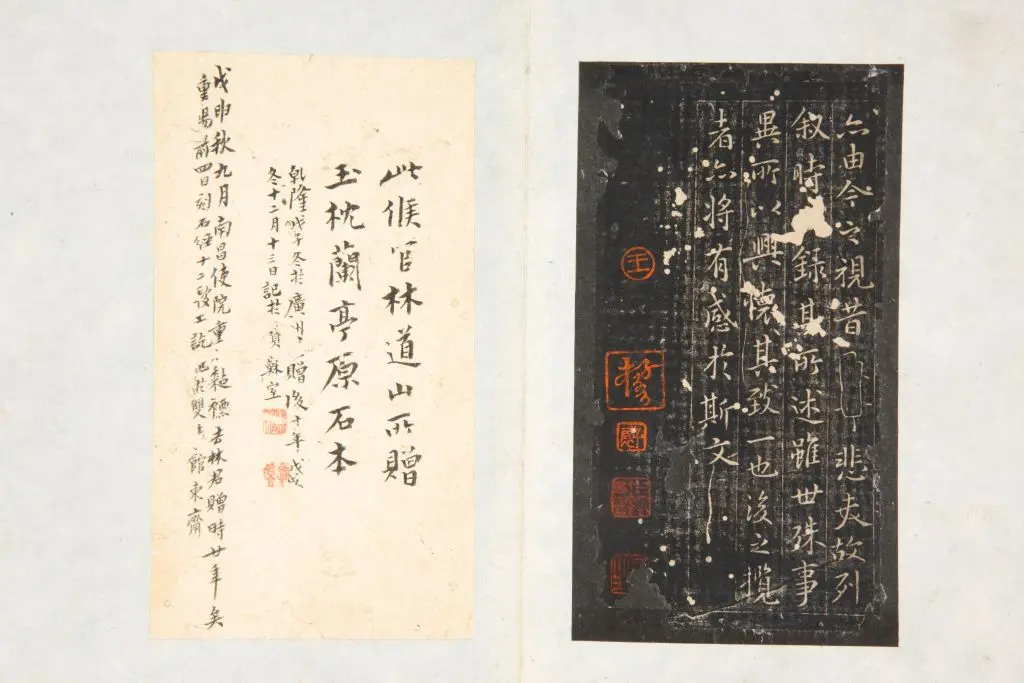 亦由今之視昔悲夫故列
叙時錄其所述雖世殊事
異所以興懷其致一也後之攬
者亦將有感於斯文
王
此候官林道山所贈
玉枕蘭亭原石本
乾隆戊子冬於廣州贈後十年戊戌
冬十二月十三日記於寶蘇室
戊申秋九月南昌使院重裱去林君贈時廿年矣
重陽前四日刻石經十二段工訖於雙館東齋